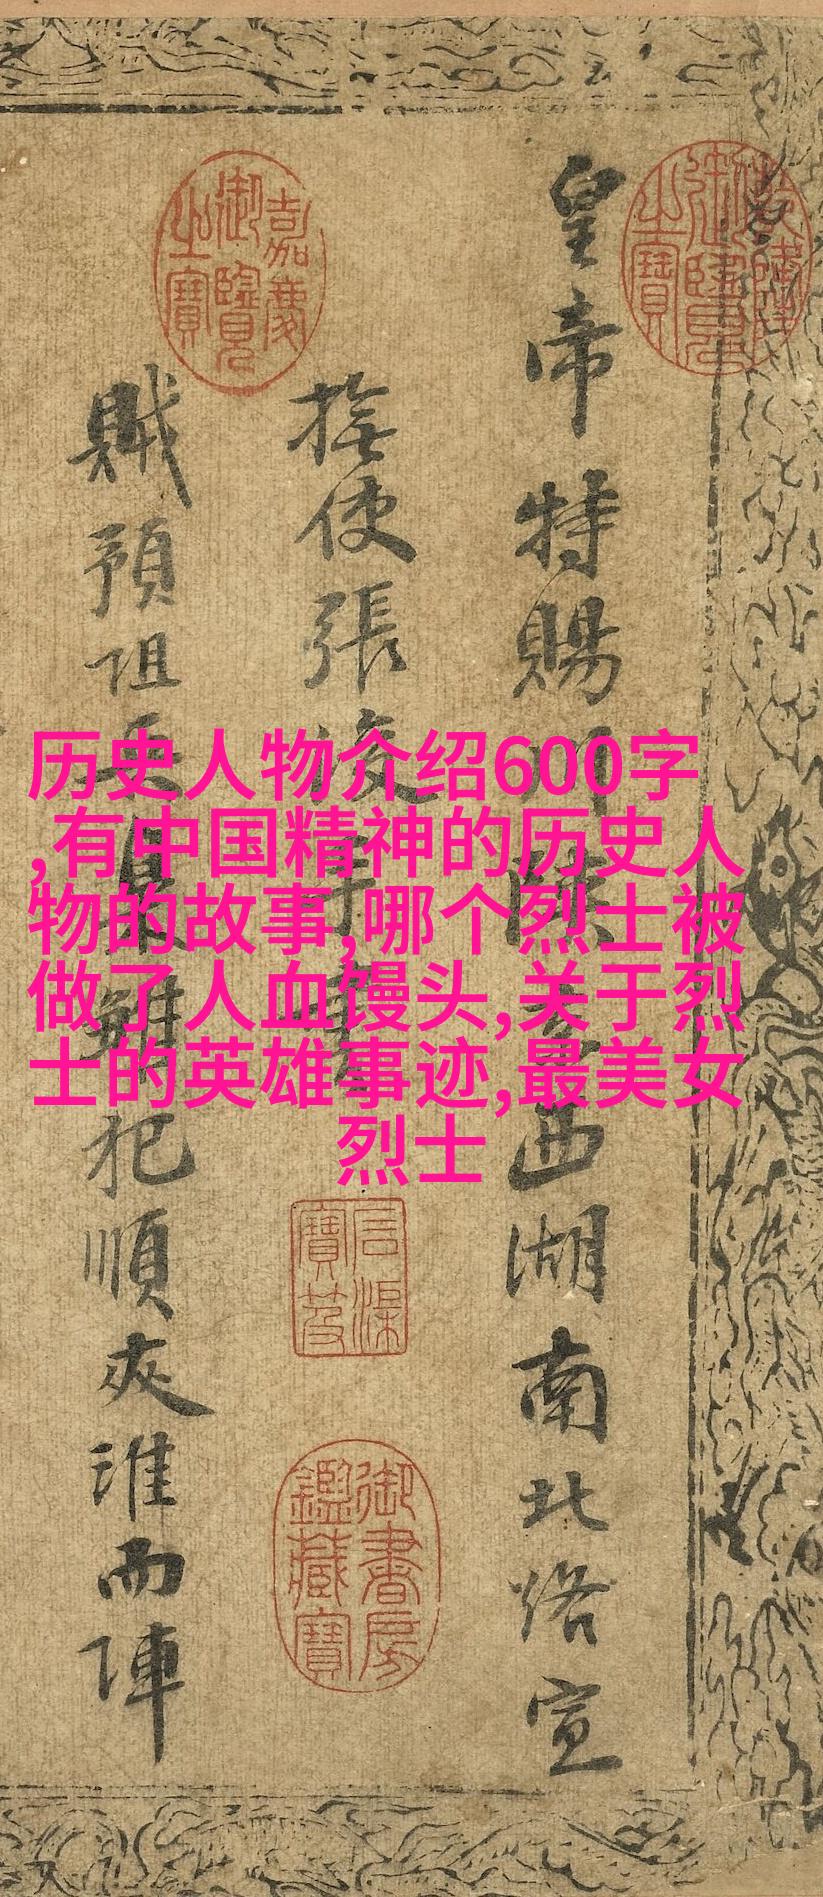 历史人物介绍600字
,有中国精神的历史人
物的故事,哪个烈士被
做了人血馒头,关于烈
士的英雄事迹,最美女
烈士
皇帝特賜川陝西湖南北路宣
撫使張浚手
賊預阻兵犯順夾淮而陣
乾隆御覽之寶
嘉慶御覽之寶
石渠寶笈
御書房鑑藏寶